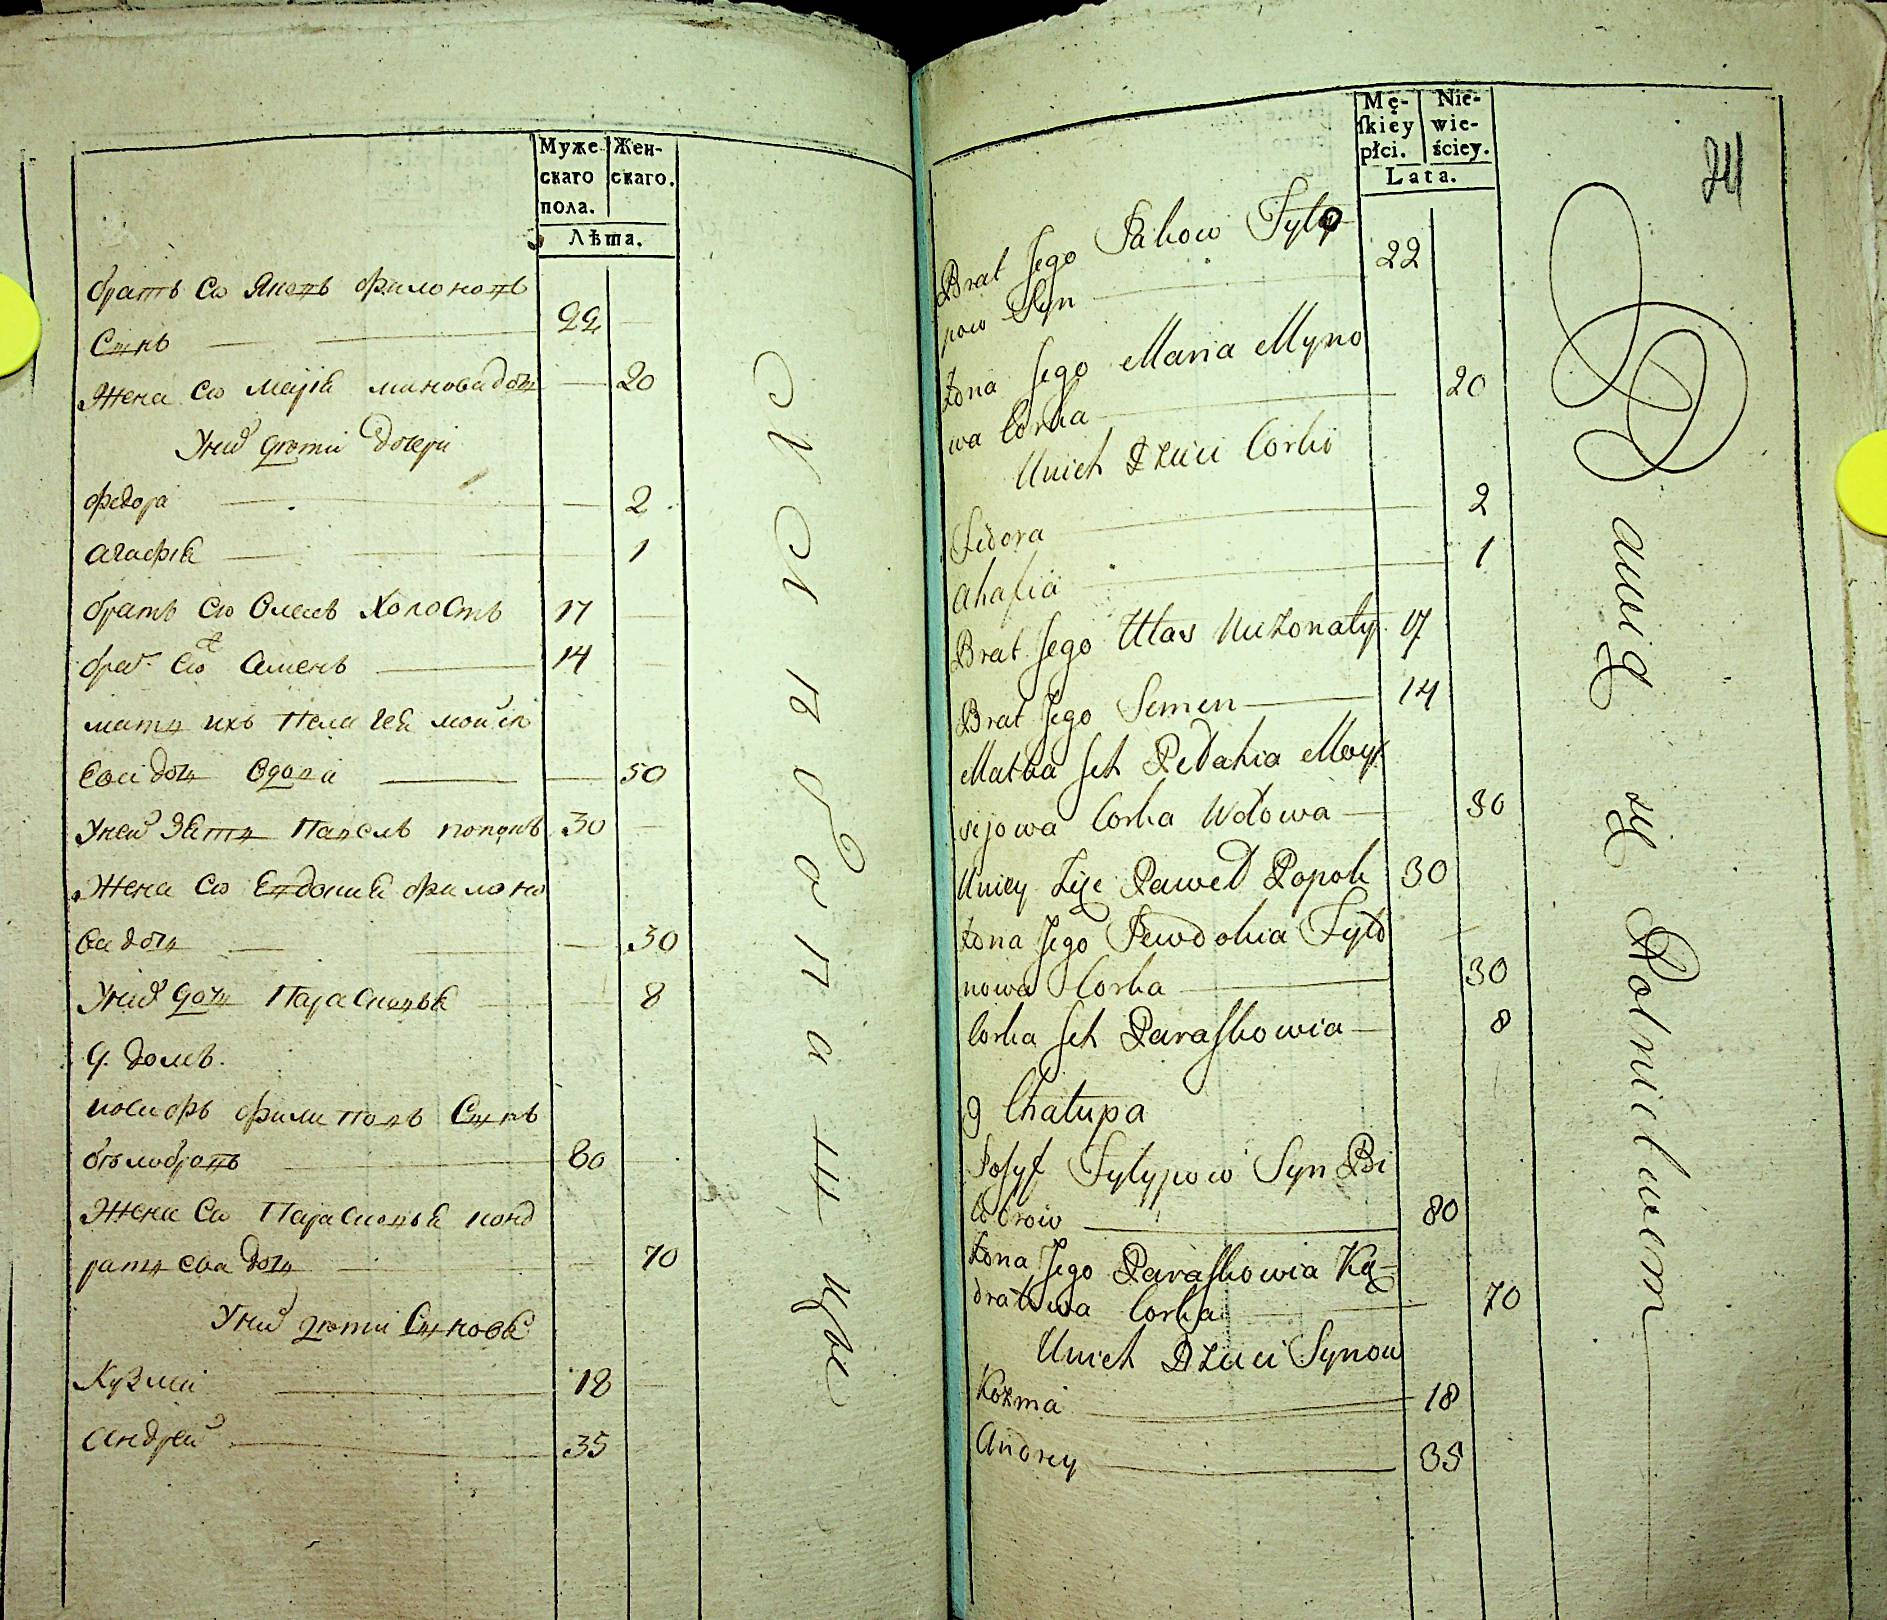 Муже
скаго
пола.
Жен-
скаго.
Лѣта.
братъ его Яковъ филоновъ
Сынъ 22
Жена его маріѧ минова дочь 20
У них дети дочери
федора 2
агафіѧ 1
братъ его Влас Холостъ 17
брат его Семенъ 14
мать ихъ Пелагеѧ моисе
ева дочь вдова 50
У ней зѧть Павелъ попокъ 30
Жена его Евдокиѧ филоно
ва дочь 30
У них дочь Парасковьѧ 8
9. домъ.
иосифъ филиповъ Сынъ
бѣлобровъ 80
Жена его Парасковьѧ конд
ратьева дочь 70
У них дети Сыновѧ
Кузма 18
Андрей 35
Мę-
skiey
płci.
Nie-
wie-
ściey.
Lata.
24
Brat Jego Jakow Fyly
pow Syn 22
Żona Jego Maria Myno
wa Corka 20
Unich Dzieci Corki
Fedora 2
Ahafia 1
Brat Jego Ułas Nieżonaty 17
Brat Jego Semen 14
Matka Jch Pełahia Moy
siejowa Corka Wdowa 50
Uniey Zięć Paweł Popok 30
Żona Jego Jewdokia Fyło
nowa Corka 30
Corka Jch Paraskowia 8
9 Chałupa
Josyf Fylypow Syn Bi
łobrow 80
Żona Jego Paraskowia Ką-
dratowa Corka 70
Unich Dzieci Synow
Kozma 18
Andrey 35